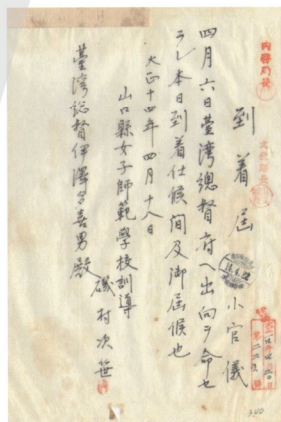 内務局長
到着届
小官儀
四月六日臺灣總督府ヘ出向ヲ命セ
ラレ本日到着仕候間及御届候也
大正十四年四月十八日
山口縣女子師範學校訓導
磯村次笹
臺灣総督伊澤多喜男殿